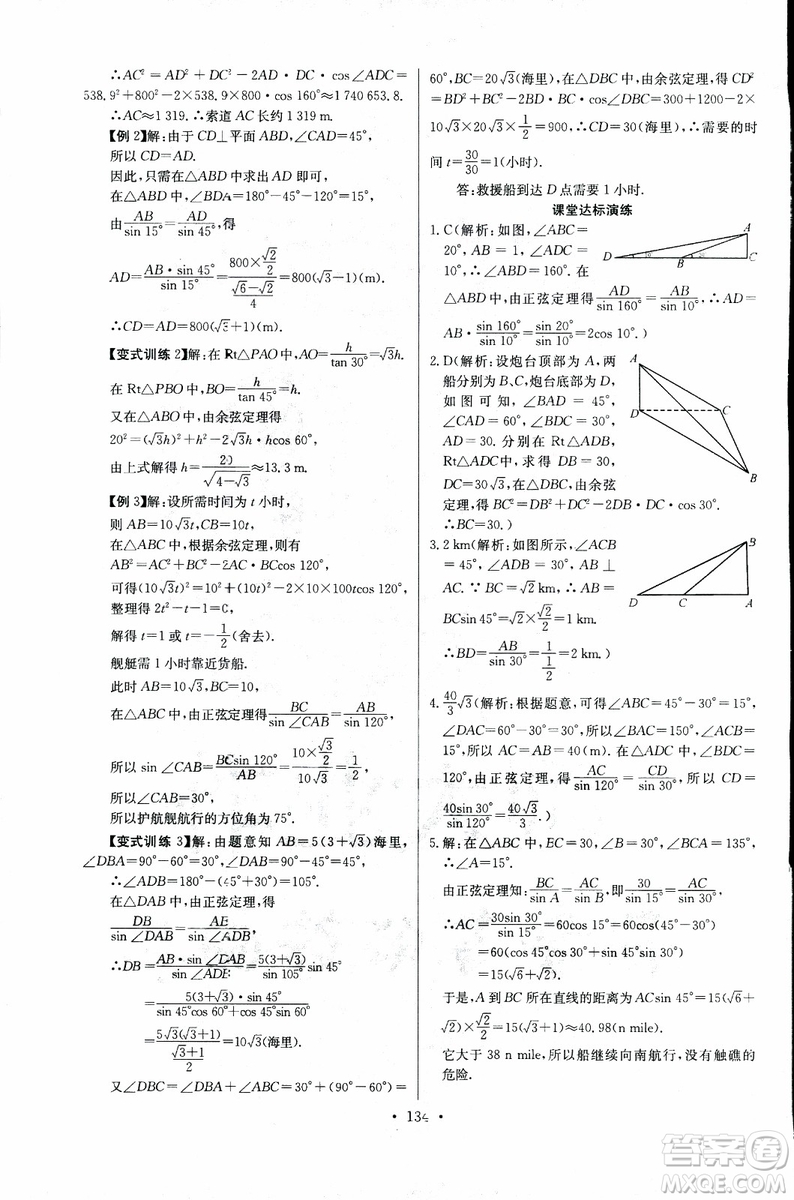 ∴AC²=AD²+DC²-2AD·DC·cos∠ADC=
538.9²+800²-2×538.9×800·cos 160°≈1 740 653.8.
∴AC≈1 319.∴索道 AC 长约 1 319 m.
【例 2】解:由于 CD⊥平面 ABD,∠CAD=45°,
所以 CD=AD.
因此,只需在△ABD 中求出 AD 即可,
在△ABD 中,∠BDA=180°-45°-120°=15°,
由AB/sin 15°=AD/sin 45°,得
AD=AB·sin 45°/sin 15°=(800×√2/2)/((√6-√2)/4)=800(√3+1)(m).
∴CD=AD=800(√3+1)(m).
【变式训练 2】解:在 Rt△PAO 中,AO=h/tan 30°=√3h.
在 Rt△PBO 中,BO=h/tan 45°=h.
又在△ABO 中,由余弦定理得
20²=(√3h)²+h²-2√3h·hcos 60°,
由上式解得 h=20/√(4-√3)≈13.3 m.
【例 3】解:设所需时间为 t 小时,
则 AB=10√3t,CB=10t,
在△ABC 中,根据余弦定理,则有
AB²=AC²+BC²-2AC·BCcos 120°,
可得(10√3t)²=10²+(10t)²-2×10×10tcos 120°,
整理得 2t²-t-1=0,
解得 t=1 或 t=-1/2(舍去).
舰艇需 1 小时靠近货船.
此时 AB=10√3,BC=10,
在△ABC 中,由正弦定理得BC/sin ∠CAB=AB/sin 120°,
所以 sin ∠CAB=BCsin 120°/AB=(10×√3/2)/(10√3)=1/2,
所以∠CAB=30°,
所以护航舰航行的方位角为 75°.
【变式训练 3】解:由题意知 AB=5(3+√3)海里,
∠DBA=90°-60°=30°,∠DAB=90°-45°=45°,
∴∠ADB=180°-(45°+30°)=105°.
在△DAB 中,由正弦定理得
DB/sin ∠DAB=AB/sin ∠ADB,
∴DB=AB·sin ∠DAB/sin ∠ADB=5(3+√3)·sin 45°/sin 105°
=5(3+√3)·sin 45°/(sin 45°cos 60°+cos 45°sin 60°)
=5√3(√3+1)/((√3+1)/2)=10√3(海里).
又∠DBC=∠DBA+∠ABC=30°+(90°-60°)=
60°,BC=20√3(海里),在△DBC 中,由余弦定理得 CD²
=BD²+BC²-2BD·BC·cos∠DBC=300+1200-2×
10√3×20√3×1/2=900,∴CD=30(海里),∴需要的时
间 t=30/30=1(小时).
答:救援船到达 D 点需要 1 小时.
课堂达标演练
1. C(解析:如图,∠ABC=
20°,AB=1,∠ADC=
10°,∴∠ABD=160°.在
△ABD 中,由正弦定理得AD/sin 160°=AB/sin 10°,∴AD=
AB·sin 160°/sin 10°=sin 20°/sin 10°=2cos 10°.)
A
D
B
C
2. D(解析:设炮台顶部为 A,两
船分别为 B、C,炮台底部为 D,
如图可知,∠BAD=45°,
∠CAD=60°,∠BDC=30°,
AD=30.分别在 Rt△ADB,
Rt△ADC中,求得DB=30,
DC=30√3,在△DBC 中,由余弦
定理,得 BC²=DB²+DC²-2DB·DC·cos 30°.
∴BC=30.)
A
D
C
B
3. 2 km(解析:如图所示,∠ACB
=45°,∠ADB=30°,AB⊥
AC.∵BC=√2 km,∴AB=
BCsin 45°=√2×√2/2=1 km.
∴BD=AB/sin 30°=1/(1/2)=2 km.
B
D
C
A
4. 40/3√3(解析:根据题意,可得∠BAD=45°-30°=15°,
∠DAC=60°-30°=30°,所以∠BAC=15°,∠ACB=
15°,所以 AC=AB=40(m).在△ADC 中,∠ADC=
120°,由正弦定理,得AC/sin 120°=CD/sin 30°,所以 CD=
40sin 30°/sin 120°=40√3/3.)
5. 解:在△ABC 中,BC=30,∠B=30°,∠BCA=135°,
∴∠A=15°.
由正弦定理知:BC/sin A=AC/sin B,即30/sin 15°=AC/sin 30°,
∴AC=30sin 30°/sin 15°=60cos 15°=60cos(45°-30°)
=60(cos 45°cos 30°+sin 45°sin 30°)
=15(√6+√2).
于是,A 到 BC 所在直线的距离为 ACsin 45°=15(√6+
√2)×√2/2=15(√3+1)≈40.98(n mile).
它大于 38 n mile,所以船继续向南航行,没有触礁的
危险.
·134·
答案圈
MXQE.COM